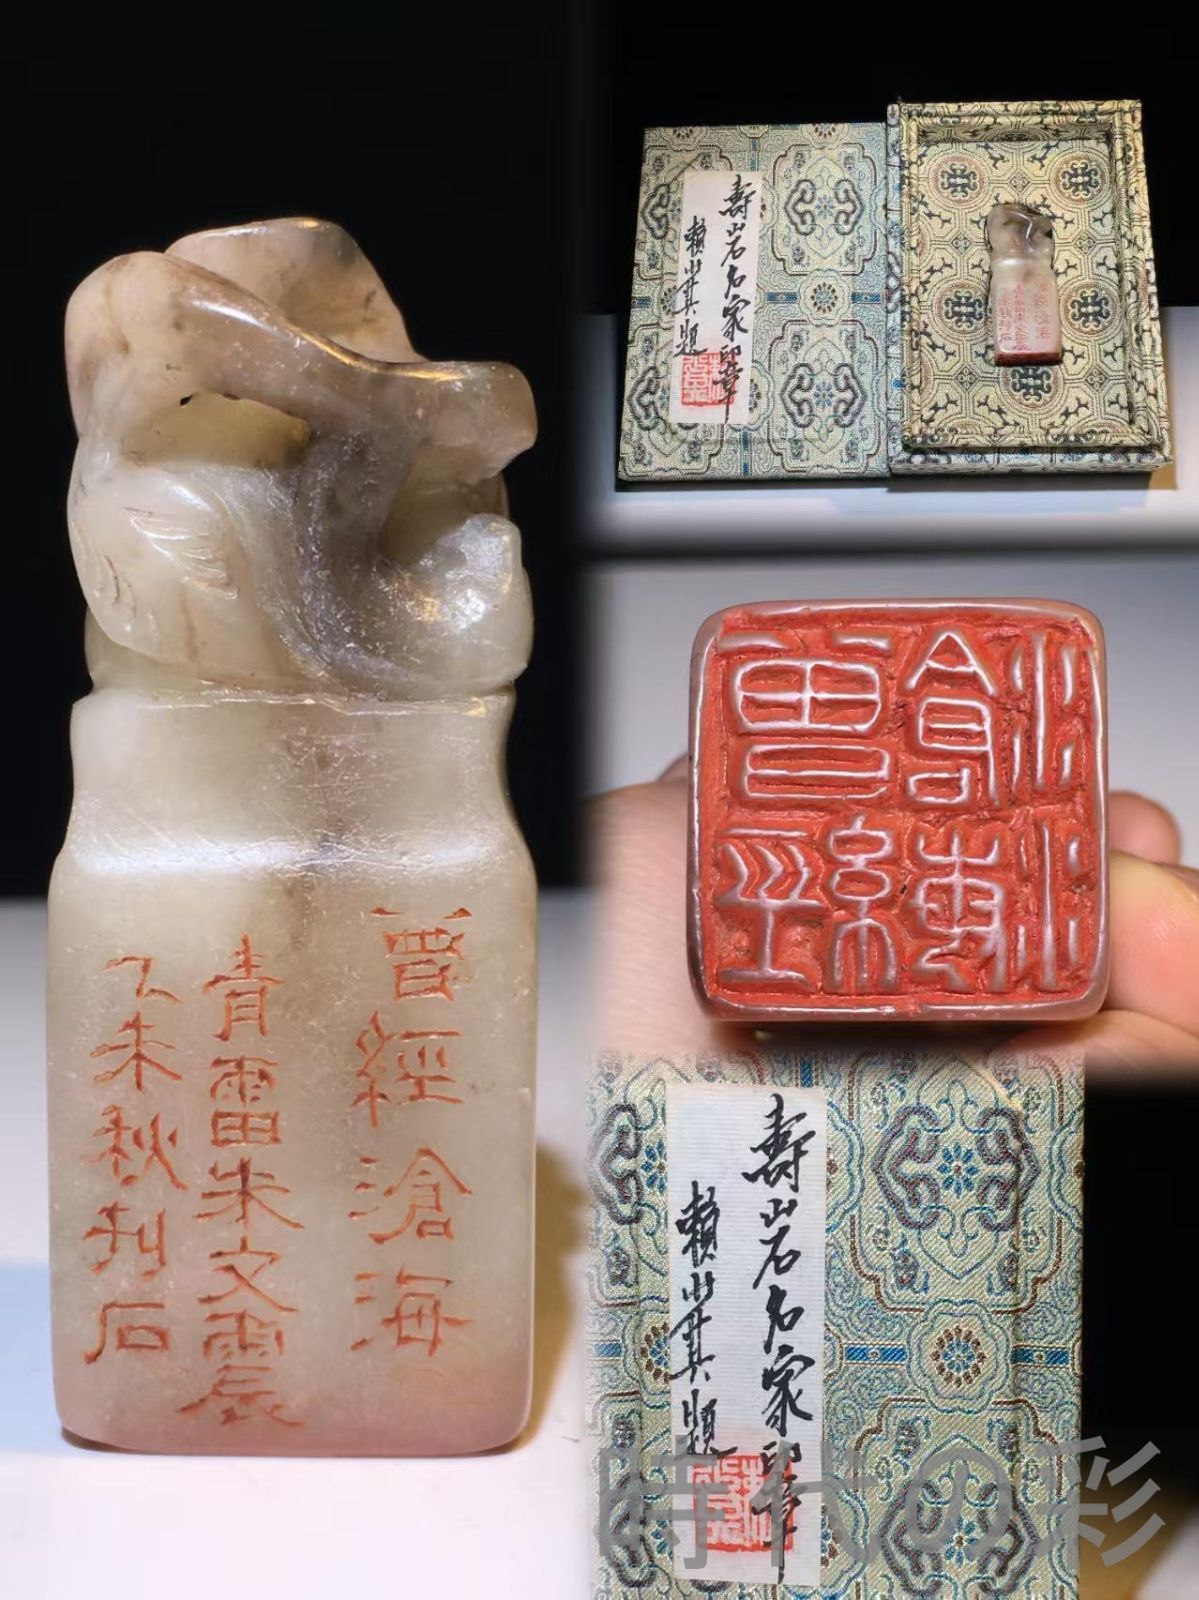 曾經滄海
青雷朱文震
乙未秋刊石
壽山石名家印章
賴少其題
壽山石名家印章
賴少其題
時代の彩